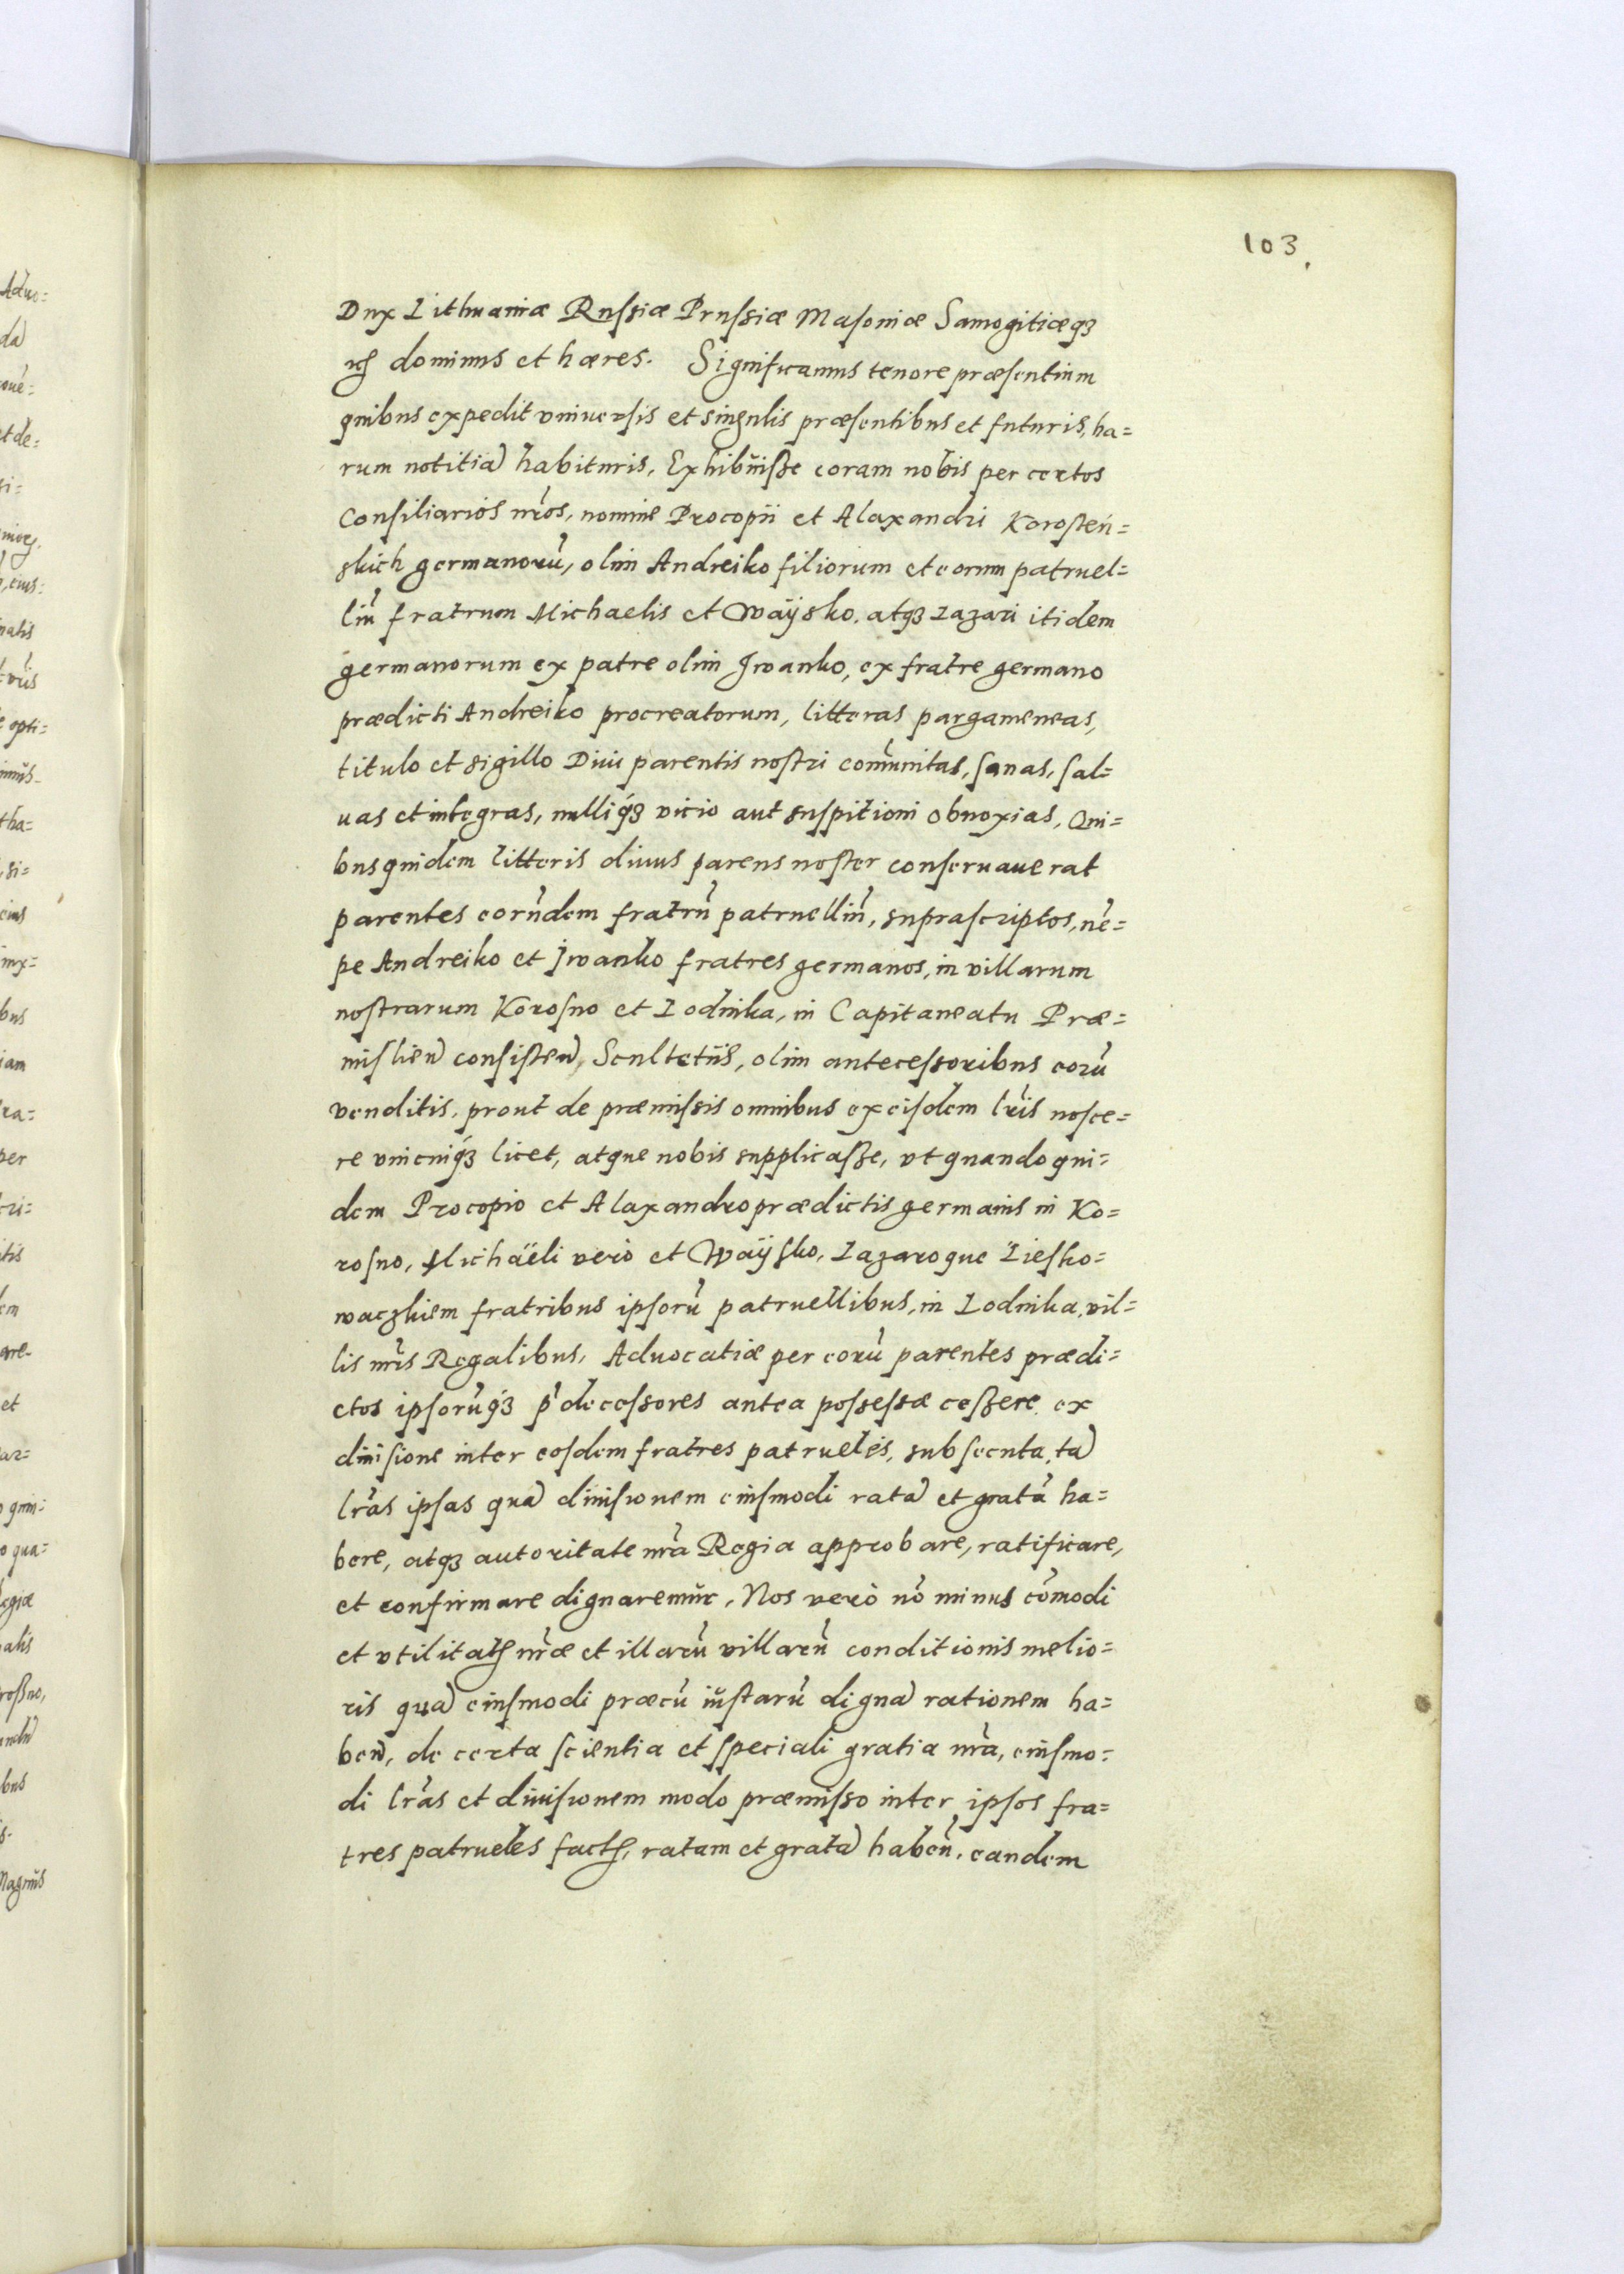 103.
Dux Lithuaniæ Russiæ Prussiæ Masoniæ Samogitiæqꝫ
dominus et hæres. Significamus tenore præsentium
quibus expedit vniuersis et singulis præsentibus et futuris, ha=
rum notitiã habituris, Exhibuisse coram nobis per certos
Consiliarios nr̃os, nomine Procopii et Alaxandri Korosteń=
skich germanorũ, olim Andreiko filiorum et eorum patruel=
liũ fratrum Michaelis et Waÿsko, atqꝫ Lazari itidem
germanorum ex patre olim Jwanko, ex fratre germano
prædicti Andreiko procreatorum, litteras pargameneas,
titulo et sigillo Diui parentis nostri com̃unitas, sanas, sal=
uas et integras, nulliqꝫ vicio aut suspitioni obnoxias, Qui=
bus quidem litteris diuus parens noster conseruauerat
parentes eorũdem fratrũ patruelliũ, suprascriptos, nẽ=
pe Andreiko et Jwanko fratres germanos, in villarum
nostrarum Korosno et Lodnika, in Capitaneatu Præ=
misliẽn consisteñ, Scultetiis, olim antecessoribus eorũ
venditis, prout de præmissis omnibus ex eisdem lr̃is nosce=
re vnicuiqꝫ licet, atque nobis supplicasse, vt quandoqui=
dem Procopio et Alaxandro prædictis germanis in Ko=
rosno, Michäeli verò et Waÿsko, Lazaroque Liesko=
waczkiem fratribus ipsorũ patruellibus, in Lodnika, vil=
lis nr̃is Regalibus, Aduocatiæ per eorũ parentes prædi=
ctos ipsorũqꝫ p̃decessores antea possessæ cessere, ex
diuisione inter eosdem fratres patrueles, subsecuta, tã
lr̃as ipsas quã diuisionem eiusmodi ratã et gratã ha=
bere, atqꝫ autoritate nr̃a Regia approbare, ratificare,
et confirmare dignaremur, Nos verò nõ minus cõmodi
et vtilitatꝭ nr̃æ et illarũ villarũ conditionis melio=
ris quã eiusmodi præcũ iustarũ dignã rationem ha=
beñ, de certa scientia et speciali gratia nr̃a, eiusmo=
di lr̃as et diuisionem modo præmisso inter ipsos fra=
tres patrueles factꝭ, ratam et gratã habeñ, eandem